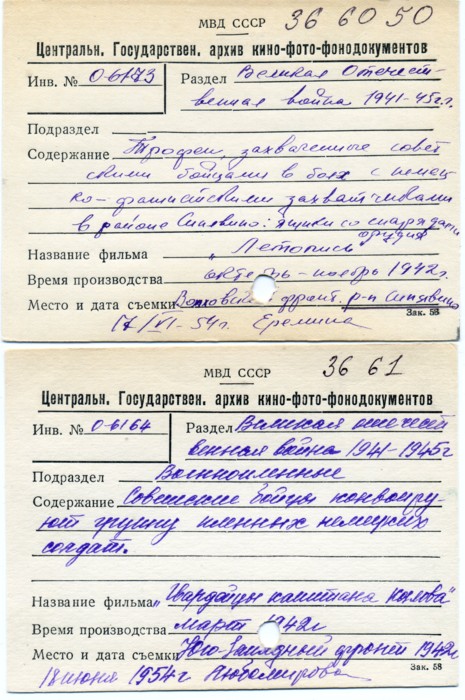 МВД СССР
36 60 50
Центральн. Государствен. архив кино-фото-фонодокументов
Инв. № О-6173
Раздел Великая Отечест-
венная война 1941-45г.г.
Подраздел
Содержание Трофеи, захваченные совет
скими бойцами в боях с немец
ко-фашистскими захватчиками
в районе Синявино: ящики со снарядами
орудия
Название фильма „Летопись
Время производства октябрь-ноябрь 1942г.
Место и дата съемки Волховский фронт. р-н Синявино
Зак. 58
17/VI-54г. Еремина
МВД СССР
36 61
Центральн. Государствен. архив кино-фото-фонодокументов
Инв. № О-6164
Раздел Великая отечест
венная война 1941-1945г
Подраздел Военнопленные
Содержание Советские бойцы конвоиру-
ют группу пленных немецких
солдат.
Название фильма „Гвардейцы капитана"
Время производства март 1942г
Место и дата съемки Юго-Западный фронт 1942г
Зак. 58
18 июня 1954г Любомирова